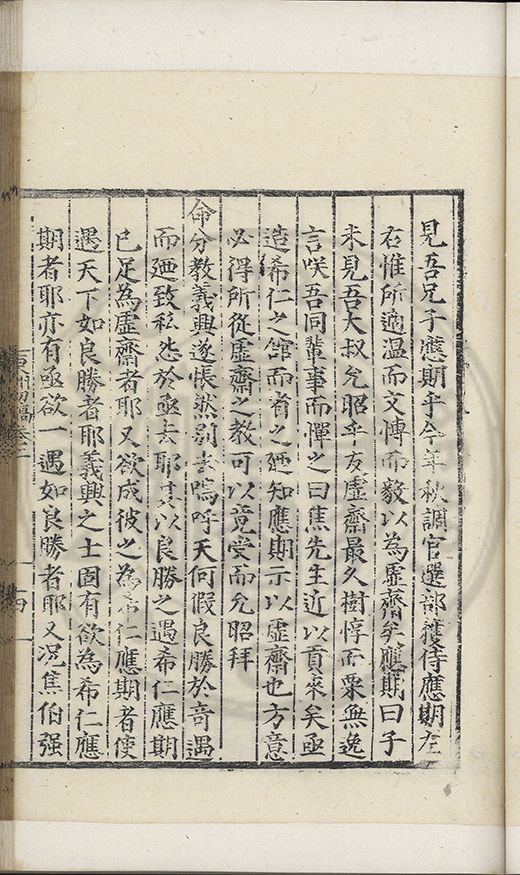 見吾兄子應期乎今年秋調官選部獲侍應期左
右惟所適温而文愽而毅以為虚齋矣應期曰子
未見吾大叔允昭乎友虚齋最久樹惇而栗無逸
言咲吾同輩事而憚之曰焦先生近以貢來矣亟
造希仁之館而肎之廼知應期示以虚齋也方意
必得所從虚齋之教可以竟受而允昭拜
命分教義興遂悵然别去嗚呼天何假良勝於竒遇
而廼致私怨於亟去耶以良勝之遇希仁應期
已足為虚齋者耶又欲成彼之為希仁應期者使
遇天下如良勝者耶義興之士固有欲為希仁應
期者耶亦有亟欲一遇如良勝者耶又况焦伯强
初稿卷十二
十四